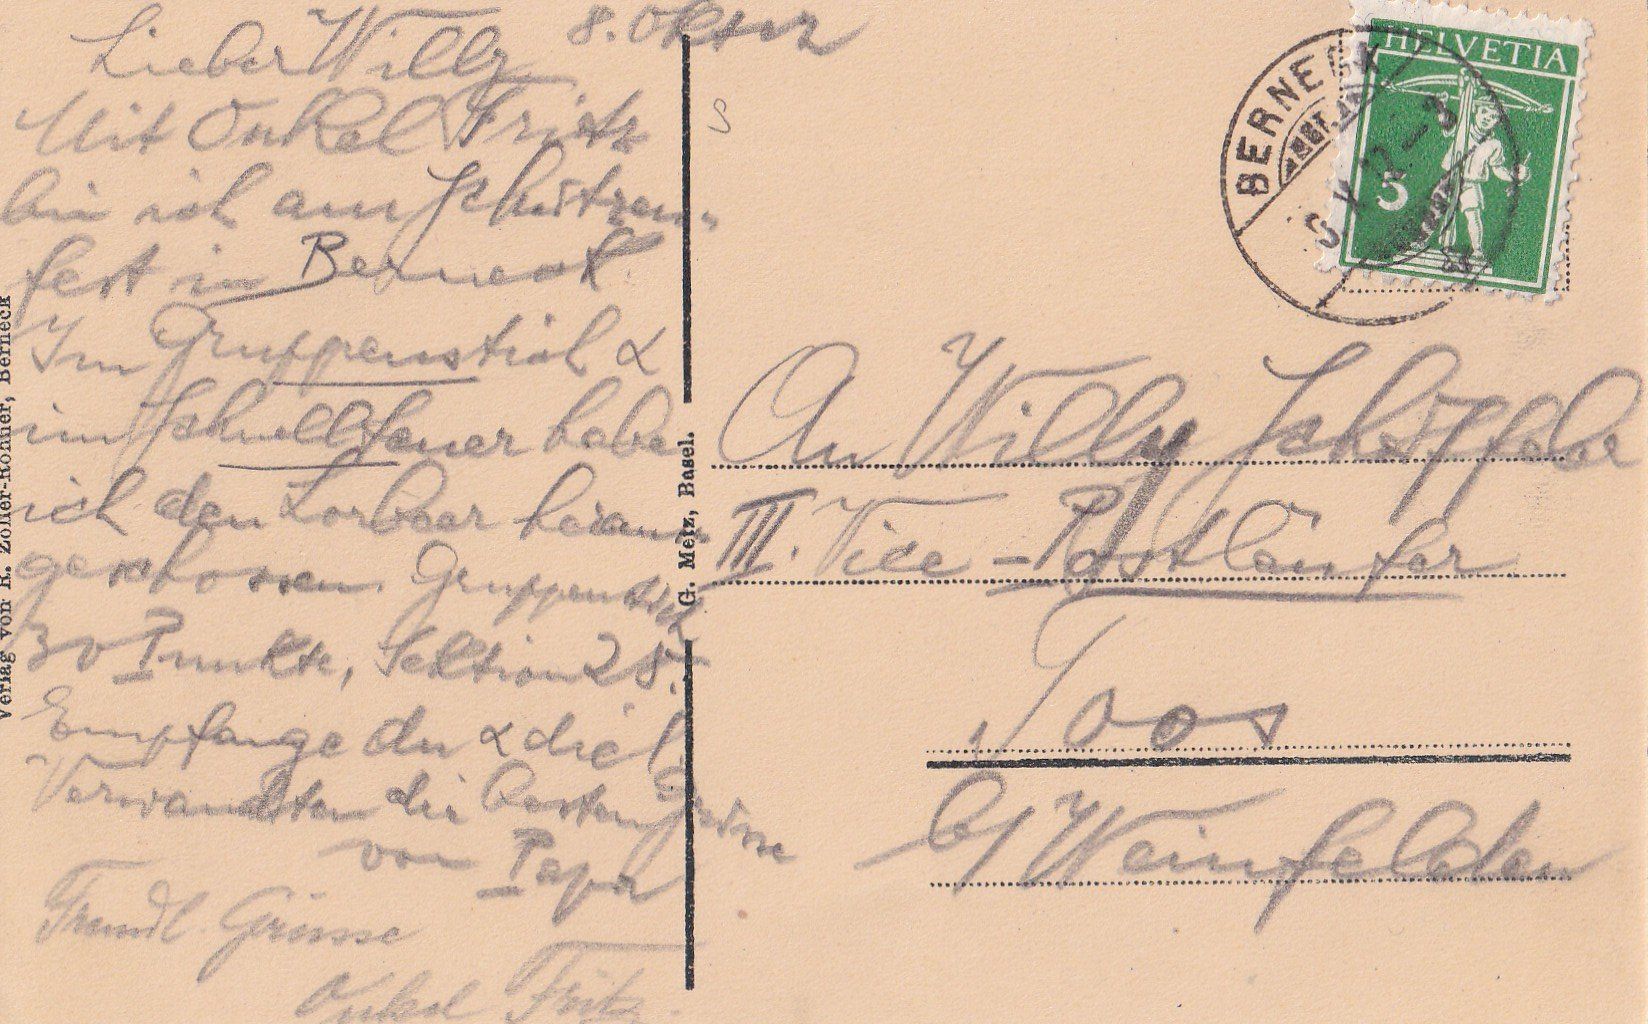 8. Oktbr
Lieber Willy
Mit Onkel Fritz
bin ich am Schützen-
fest in Berneck.
Im Gruppenstich &
im Schnellfeuer habe
ich den Lorbeer heraus-
geschossen. Gruppenstich
30 Punkte, Sektion 25.
Empfange du & die l.
Verwandten die besten Grüsse
von Papa
Freundl. Grüsse
Onkel Fritz.
Verlag von R. Zoller-Rohner, Berneck
G. Metz, Basel.
S
BERNECK
HELVETIA
5
An Willy
III. Vice-Postläufer
Toos
b/ Weinfelden